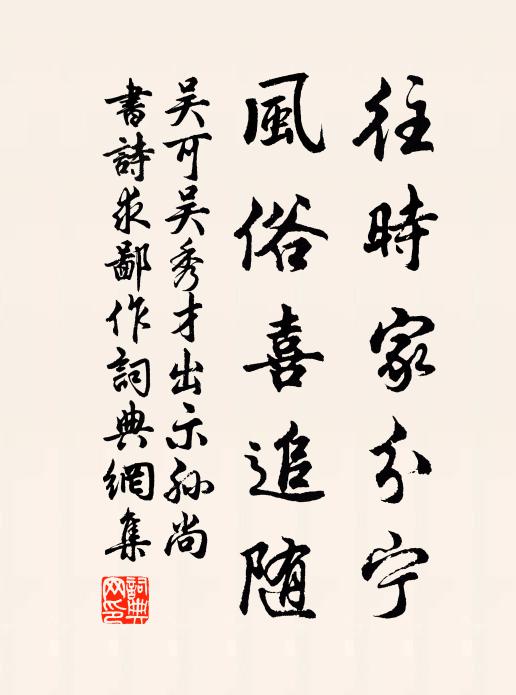 往時家分宁
風俗喜追随
吴可吴秀才出示孙尚
書詩求鄙作詞典網集
詞典網印